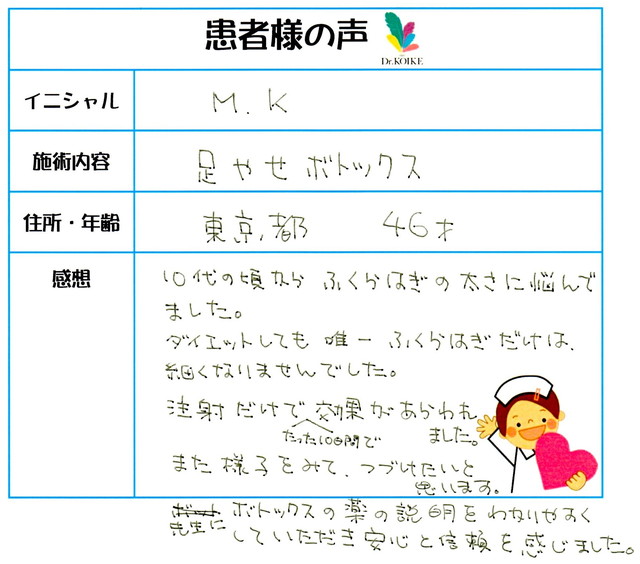 患者様の声
Dr.KOIKE
イニシャル M.K
施術内容 足やせボトックス
住所・年齢 東京都 46才
感想
10代の頃から ふくらはぎの太さに悩んで
ました。
ダイエットしても 唯一 ふくらはぎだけは、
細くなりませんでした。
注射だけで効果があらわれ
たった10日間で
ました。
また様子をみて、つづけたいと
思います。
先生に ボトックスの薬の説明をわかりやすく
していただき安心と信頼を感じました。